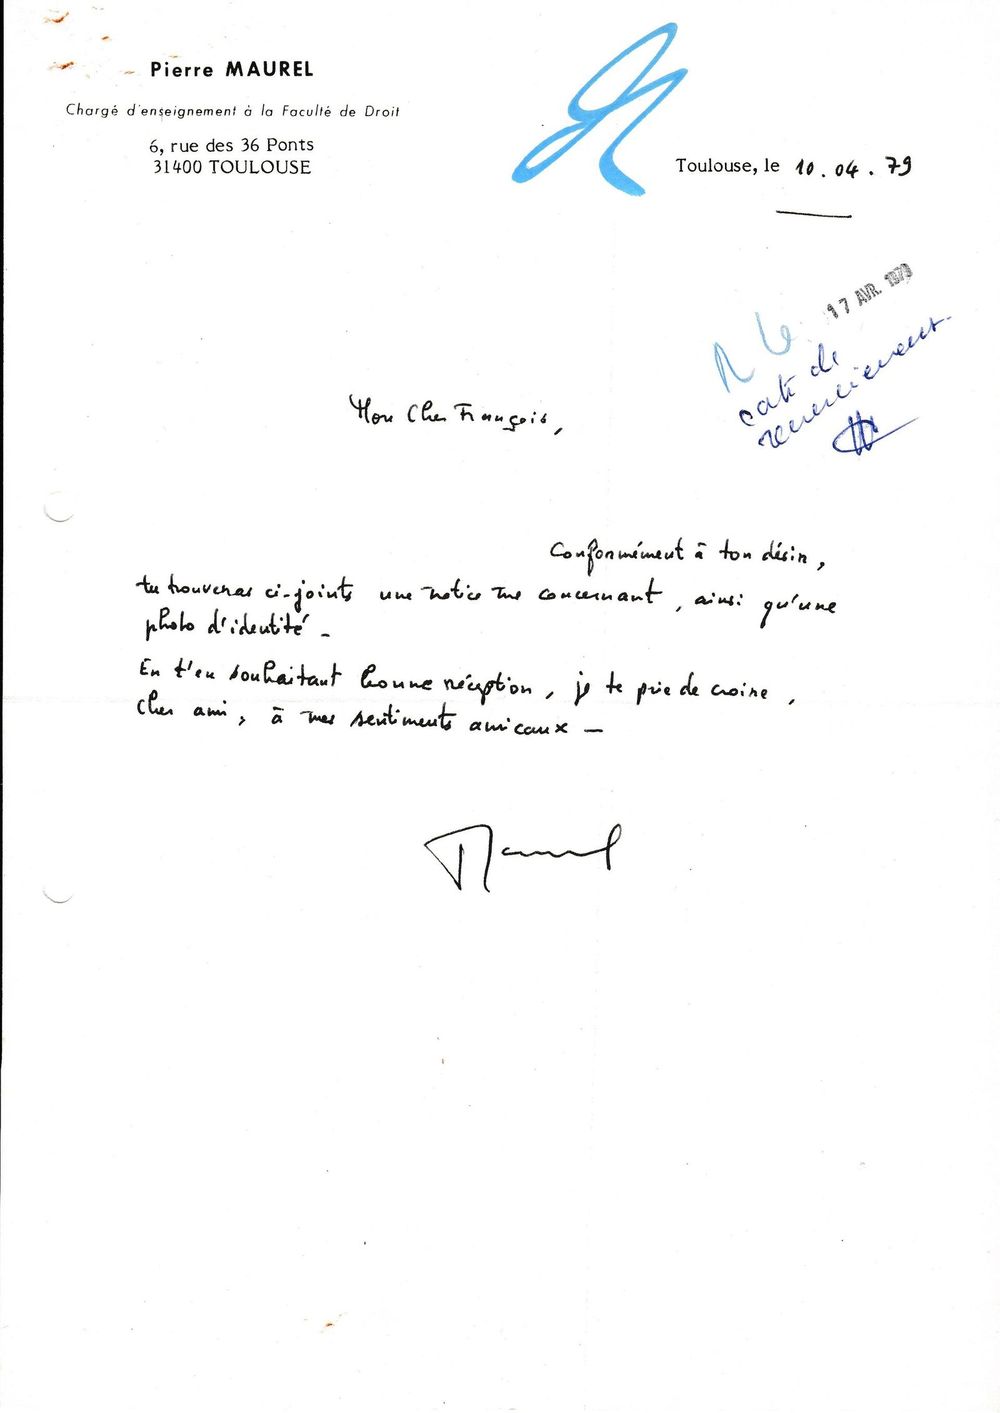 Pierre MAUREL
Chargé d'enseignement à la Faculté de Droit
6, rue des 36 Ponts
31400 TOULOUSE
Toulouse, le 10.04.79
17 AVR. 1979
carte de
remerciement.
Mon Cher François,
Conformément à ton désir,
tu trouveras ci-joints une notice me concernant, ainsi qu'une
photo d'identité -
En t'en souhaitant bonne réception, je te prie de croire,
Cher ami, à mes sentiments amicaux -
Maurel